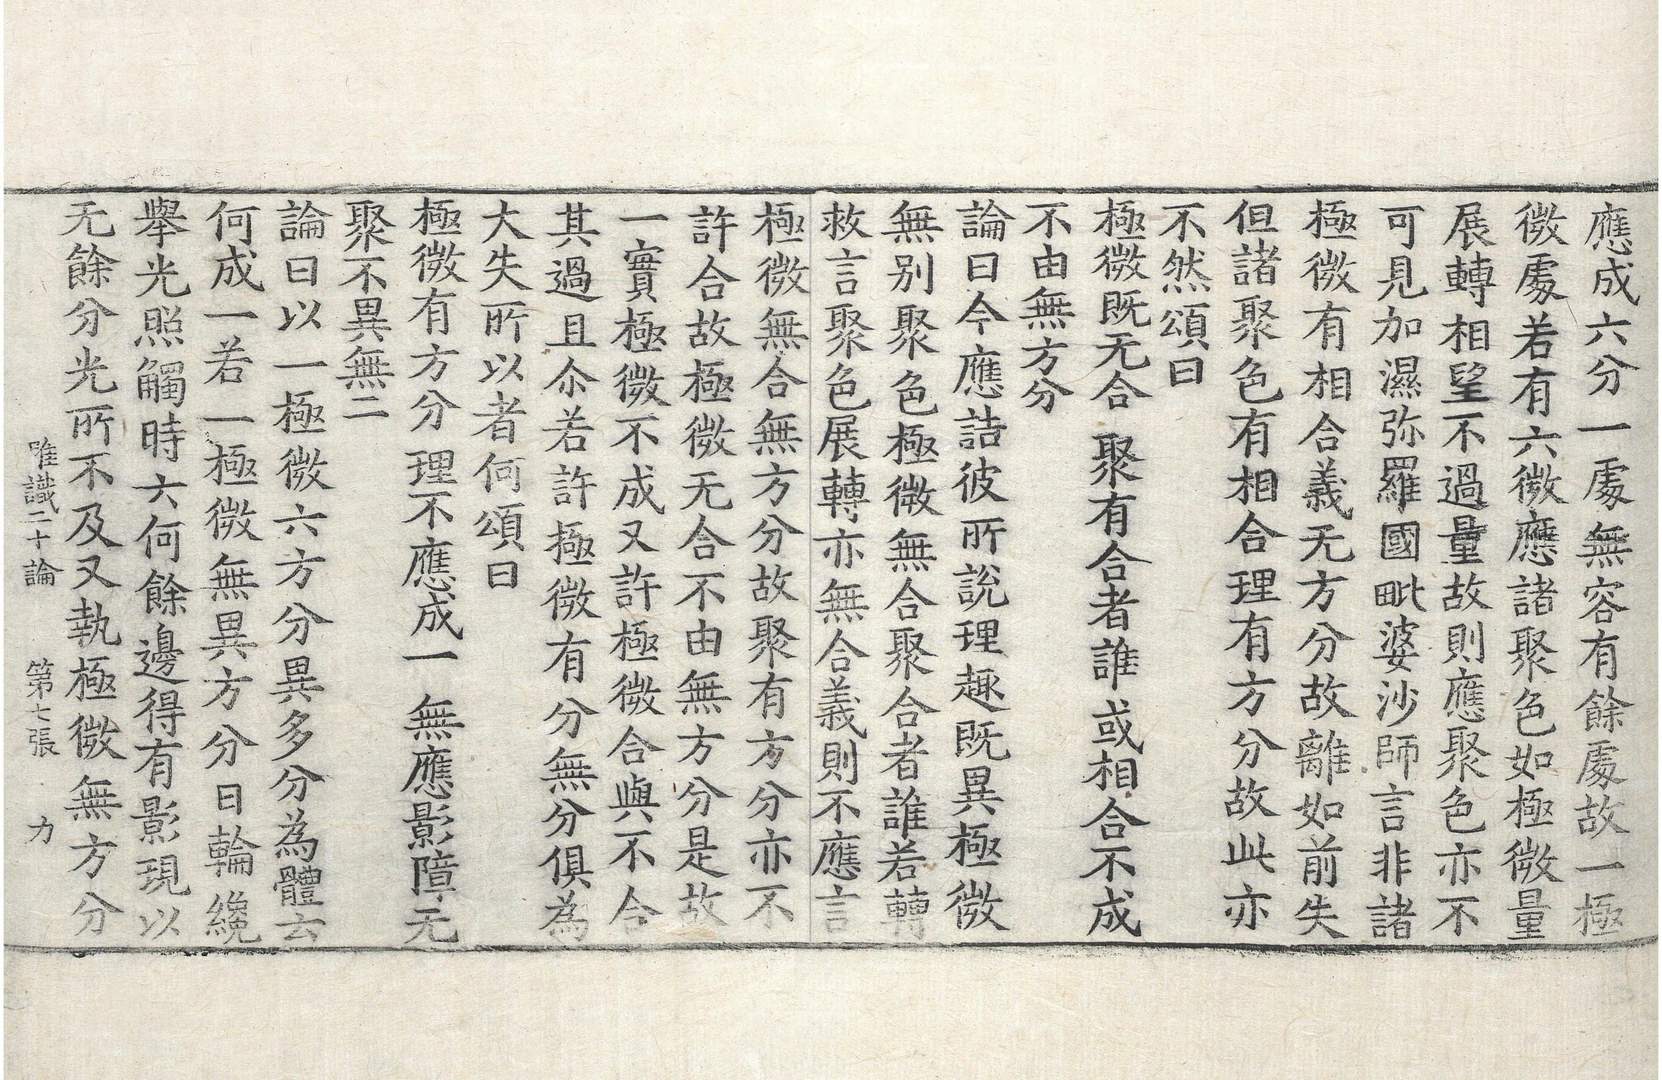 應成六分一處無容有餘處故一極
微處若有六微應諸聚色如極微量
展轉相望不過量故則應聚色亦不
可見加濕弥羅國毗婆沙師言非諸
極微有相合義无方分故離如前失
但諸聚色有相合理有方分故此亦
不然頌曰
極微既无合 聚有合者誰 或相合不成
不由無方分
論曰今應詰彼所說理趣既異極微
無別聚色極微無合聚合者誰若轉
救言聚色展轉亦無合義則不應言
極微無合無方分故聚有方分亦不
許合故極微无合不由無方分是故
一實極微不成又許極微合與不合
其過且尒若許極微有分無分俱為
大失所以者何頌曰
極微有方分 理不應成一 無應影障无
聚不異無二
論曰以一極微六方分異多分為體云
何成一若一極微無異方分日輪纔
舉光照觸時云何餘邊得有影現以
无餘分光所不及又執極微無方分
唯識二十論 第七張 力